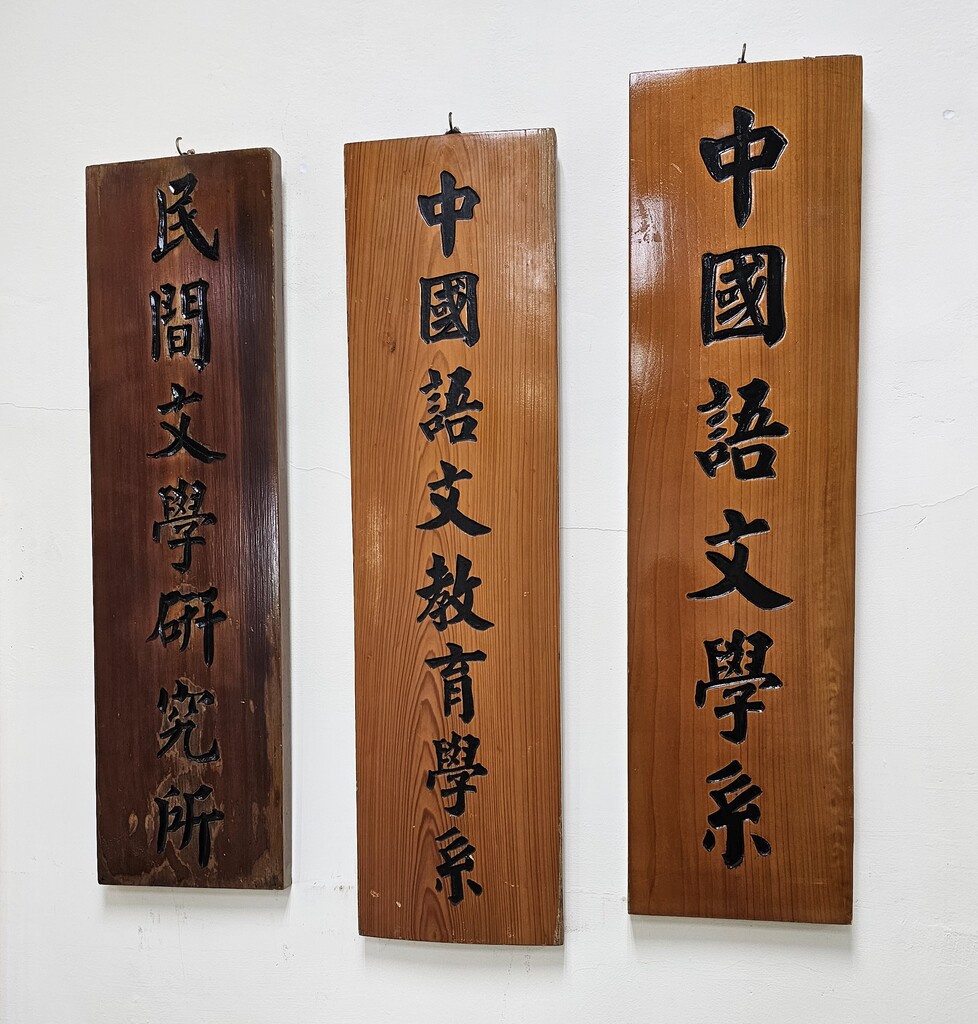 中國語文學系
中國語文教育學系
民間文學研究所